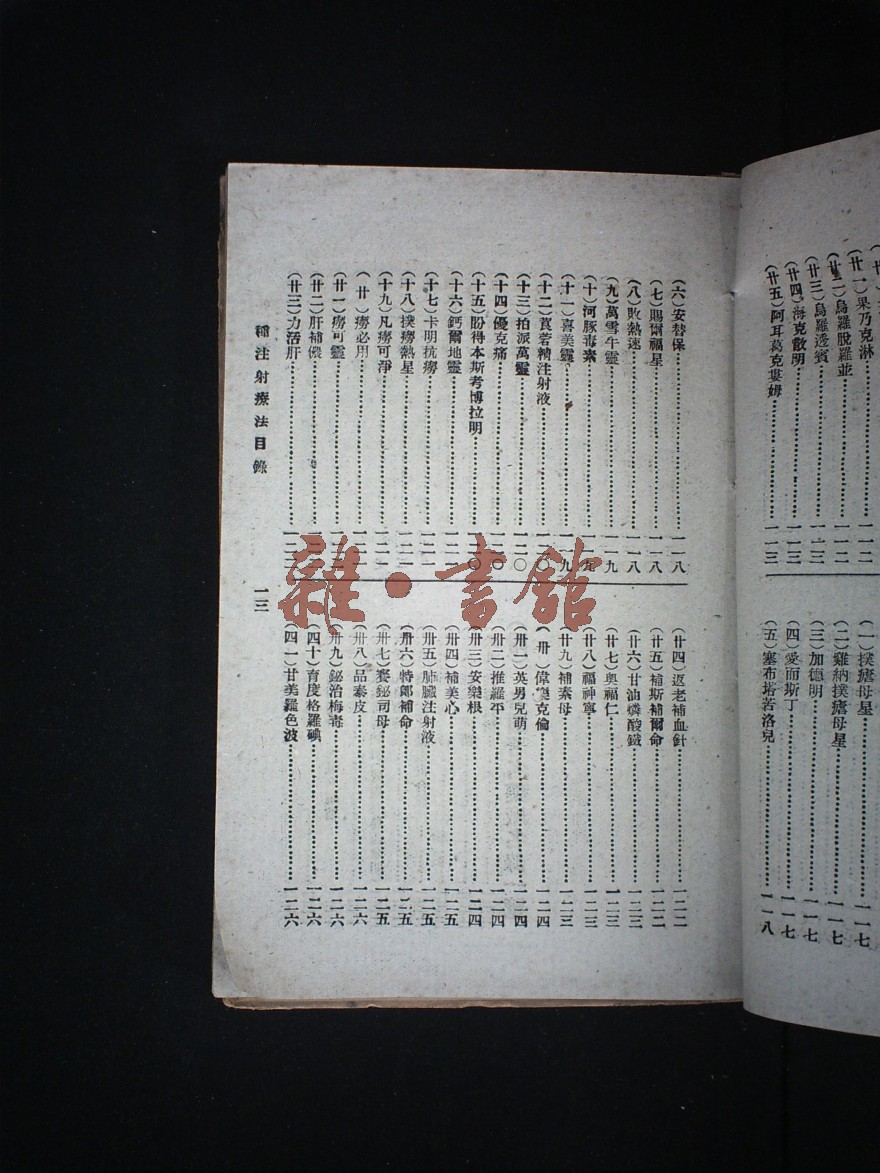 果乃克淋…一一二
(廿二)烏羅脫羅並…一一二
(廿三)烏羅透賓…一一三
(廿四)海克散明…一一三
(廿五)阿耳葛克婁姆…一一三
(一)撲瘧母星…一一七
(二)雞納撲瘧母星…一一七
(三)加德明…一一七
(四)愛而斯丁…一一七
(五)塞布塔若洛兒…一一八
(六)安替保…一一八
(七)賜爾福星…一一八
(八)敗熱速…一一八
(九)萬雪牛靈…一一九
(十)河豚毒素…一一九
(十一)喜美靈…一一九
(十二)莨菪精注射液…一二〇
(十三)拍派萬靈…一二〇
(十四)優克痛…一二〇
(十五)盼得本斯考博拉明…一二〇
(十六)鈣爾地靈…一二一
(十七)卡明抗癆…一二一
(十八)撲癆熱星…一二一
(十九)凡癆可淨…一二一
(廿)癆必用
(廿一)癆可靈
(廿二)肝補儂
(廿三)力活肝
(廿四)返老補血針…一二二
(廿五)補斯補爾命…一二二
(廿六)甘油燐酸鐵…一二三
(廿七)奥福仁…一二三
(廿八)福神寧…一二三
(廿九)補素母…一二三
(卅)偉樂克倫…一二四
(卅一)英男兒萌…一二四
(卅二)推羅平…一二四
(卅三)安樂根…一二四
(卅四)補美心…一二五
(卅五)肺臟注射液…一二五
(卅六)特郎補命…一二五
(卅七)賽鉍司母…一二五
(卅八)品泰皮…一二六
(卅九)鉍治梅毒…一二六
(四十)育度格羅碘…一二六
(四一)甘美羅色波…一二六
種注射療法目錄
一三
雜·書館